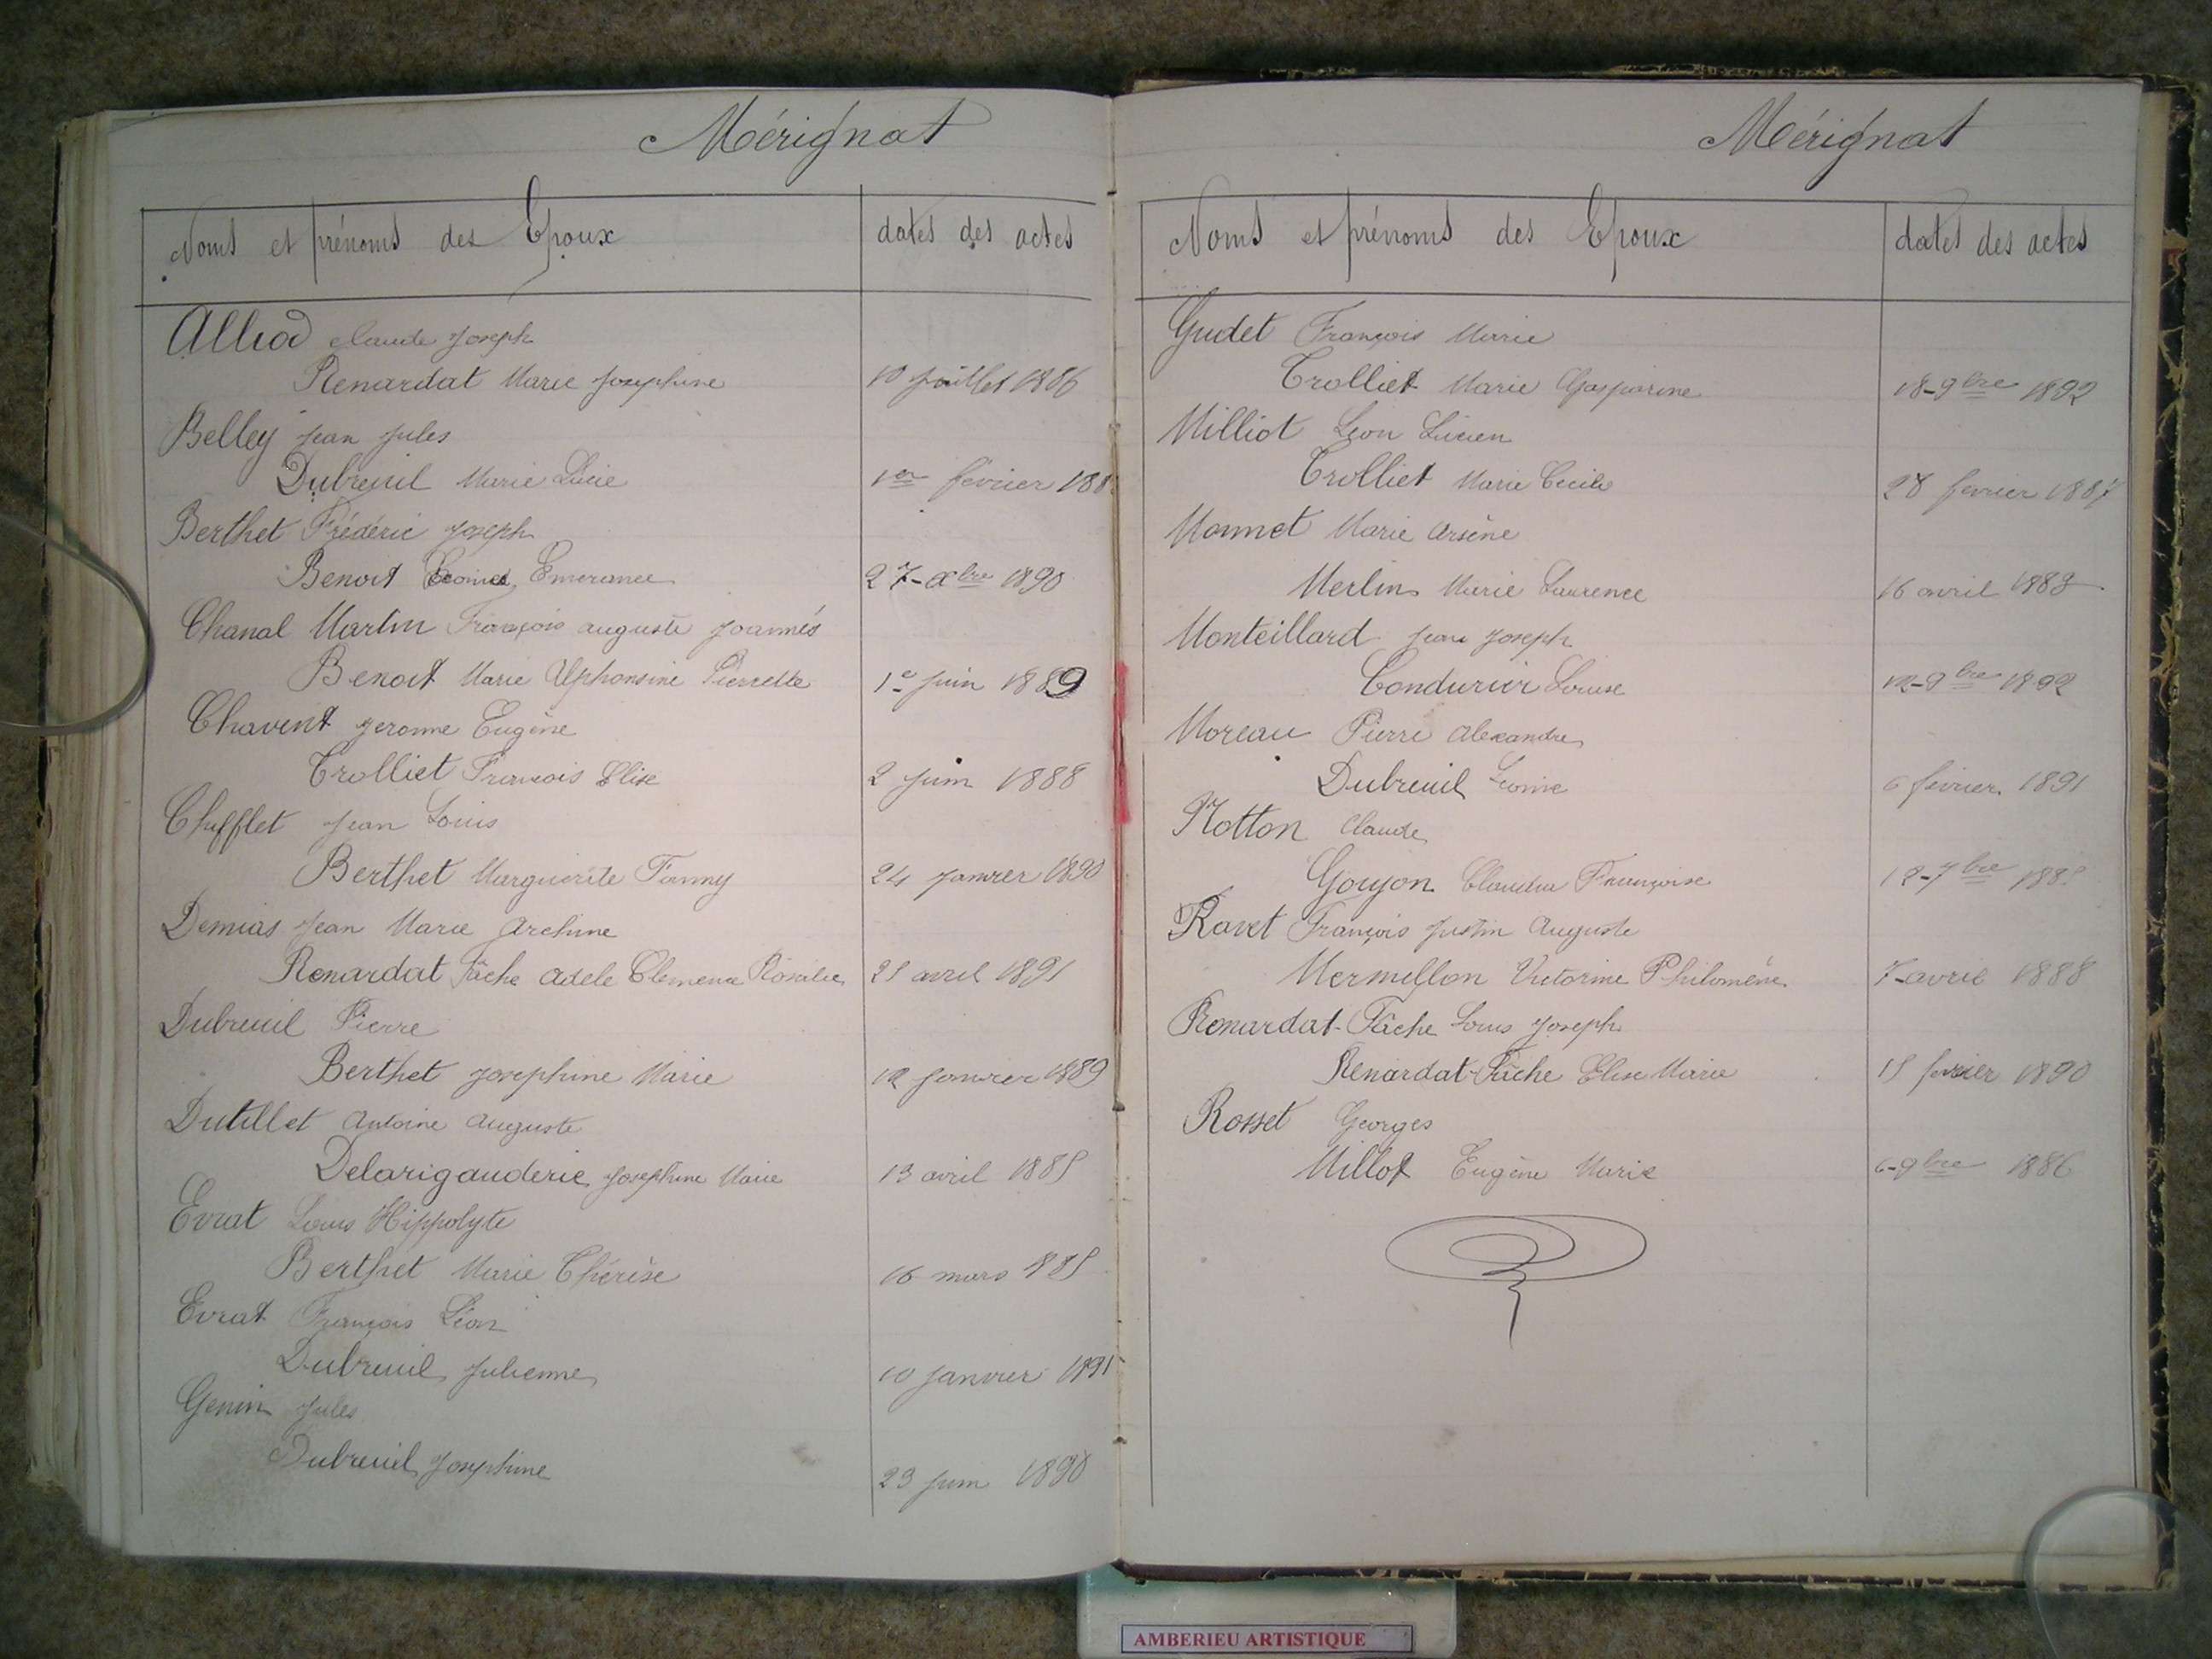 Mérignat
Noms et prénoms des Epoux dates des actes
Alliod Claude Joseph
Renardat Marie Josephine 10 juillet 1886
Belley Jean Jules
Dubreuil Marie Lucie 1er février 188
Berthet Frédéric Joseph
Benoit Emerance 27-Xbre 1890
Chanal Martin François auguste Joannès
Benoit Marie Alphonsine Pierrette 1er juin 1889
Chavent Jerome Eugène
Trolliet François Elise 2 juin 1888
Chufflet Jean Louis
Berthet Marguerite Fanny 24 Janvier 1890
Demias Jean Marie
Renardat Fâche Adele Clemence Rosalie 25 avril 1891
Dubreuil Pierre
Berthet Josephine Marie 12 Janvier 1889
Dutillet Antoine Auguste
Delarigauderie Josephine Marie 13 avril 1885
Evrat Louis Hippolyte
Berthet Marie Thérèse 16 mars 1885
Evrat François Léon
Dubreuil Julienne 10 janvier 1891
Genin Jules
Dubreuil Josephine 23 juin 1890
Mérignat
Noms et prénoms des Epoux dates des actes
Gudet François Marie
Trolliet Marie Gasparine 18-9bre 1892
Milliot Léon Lucien
Trolliet Marie Cecile 28 fevrier 1887
Monnet Marie Arsène
Merlin Marie Laurence 16 avril
Monteillard Jean Joseph
Condurier Louise 12-9bre 1892
Moreau Pierre Alexandre
Dubreuil Leonie 6 février 1891
Notton Claude
Goyon Claudia Françoise 12-7bre
Ravet François Justin Auguste
Mermillon Victorine Philomène 7-avril 1888
Renardat-Fâche Louis Joseph
Renardat-Fâche Elise Marie 15 fevrier 1890
Rosset Georges
Millot Eugène Marie 6-9bre 1886
AMBERIEU ARTISTIQUE